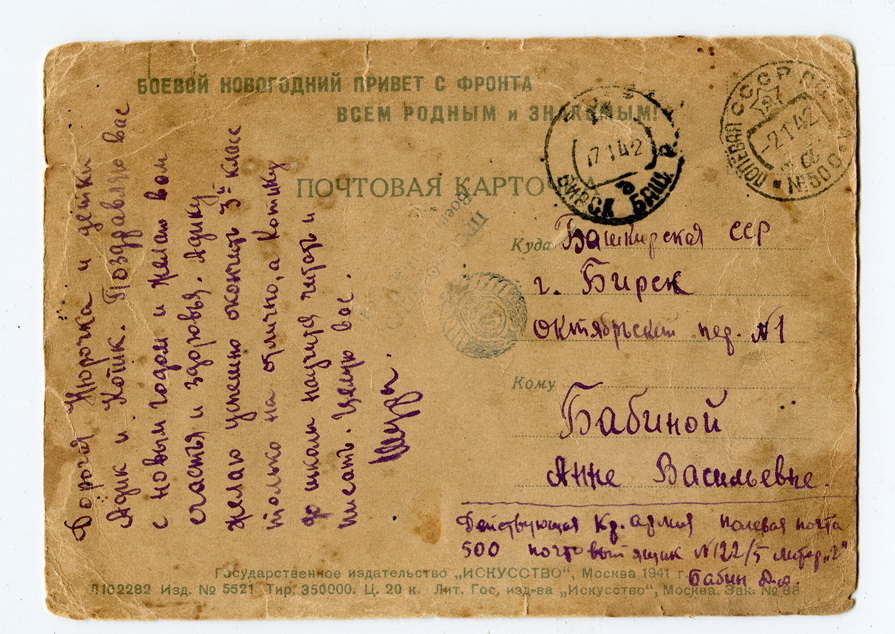 БОЕВОЙ НОВОГОДНИЙ ПРИВЕТ С ФРОНТА
ВСЕМ РОДНЫМ и ЗНАКОМЫМ!
ПОЧТОВАЯ КАРТОЧКА
ПОЛЕВАЯ СССР ПОЧТА
-2 1 42
№ 500
17 1 42
БИРСК БАШ
Дорогая Нюрочка и детки
Адик и Котик. Поздравляю вас
с новым годом и желаю вам
счастья и здоровья. Адику
желаю успешно окончить 3й класс
только на отлично, а Котику
до школы научится читать и
писать. Целую вас.
Шура.
Куда Башкирская ССР
г. Бирск
Октябрьский пер. №1
Кому
Бабиной
Анне Васильевне.
Действующая Кр. армия полевая почта
500 почтовый ящик №122/5 литер „2“
Бабин Д.А.
Государственное издательство „ИСКУССТВО“, Москва 1941 г.
Л102282 Изд. № 5521 Тир. 350000. Ц. 20 к. Лит. Гос, изд-ва „Искусство“, Москва. Зак. № 88